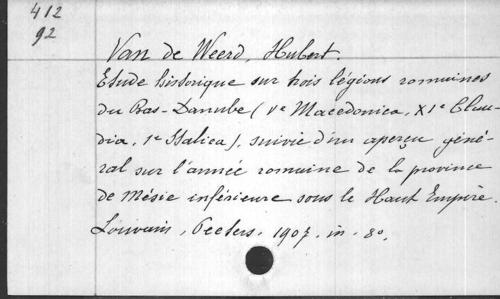 412
92
Van de Weerd, Hubert.
Etude historique sur trois légions romaines
du Bas-Danube (Ve Macedonica, XIe Clau-
dia, 1e Italica), suivie d'un aperçu géné-
ral sur l'armée romaine de la province
de Mésie inférieure sous le Haut Empire.
Louvain, Peeters, 1907. in-8o.